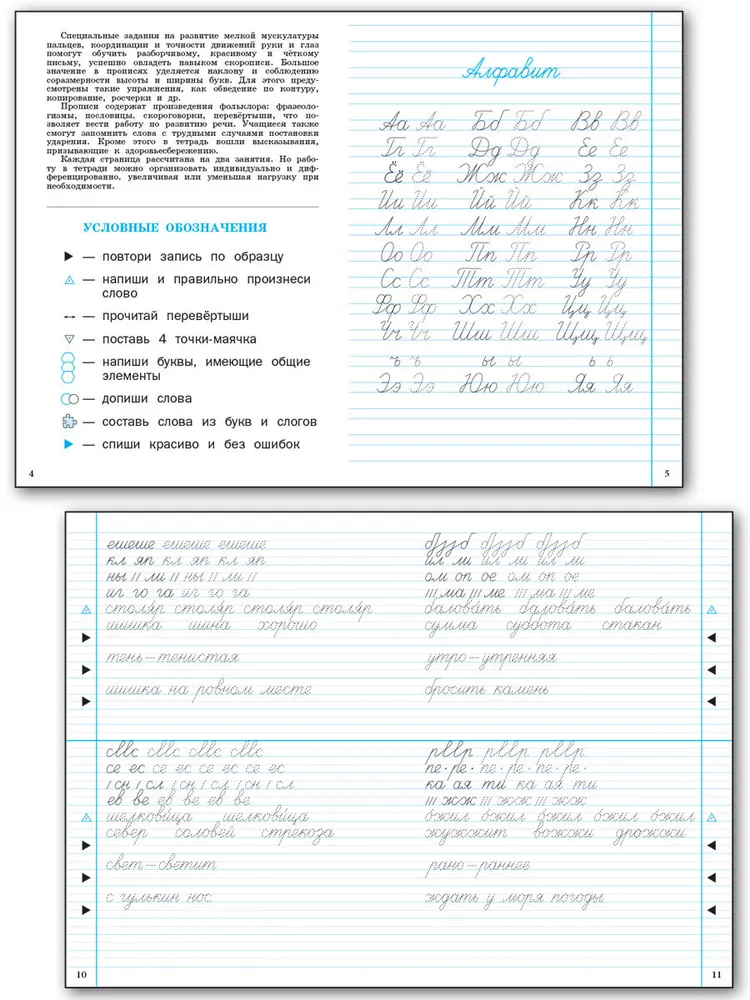 Специальные задания на развитие мелкой мускулатуры
пальцев, координации и точности движений руки и глаз
помогут обучить разборчивому, красивому и чёткому
письму, успешно овладеть навыком скорописи. Большое
значение в прописях уделяется наклону и соблюдению
соразмерности высоты и ширины букв. Для этого преду-
смотрены такие упражнения, как обведение по контуру,
копирование, росчерки и др.
Прописи содержат произведения фольклора: фразеоло-
гизмы, пословицы, скороговорки, перевёртыши, что по-
зволяет вести работу по развитию речи. Учащиеся также
смогут запомнить слова с трудными случаями постановки
ударения. Кроме этого в тетрадь вошли высказывания,
призывающие к здоровьесбережению.
Каждая страница рассчитана на два занятия. Но рабо-
ту в тетради можно организовать индивидуально и диф-
ференцированно, увеличивая или уменьшая нагрузку при
необходимости.
УСЛОВНЫЕ ОБОЗНАЧЕНИЯ
— повтори запись по образцу
— напиши и правильно произнеси
слово
— прочитай перевёртыши
— поставь 4 точки-маячка
— напиши буквы, имеющие общие
элементы
— допиши слова
— составь слова из букв и слогов
— спиши красиво и без ошибок
4
Алфавит
Аа Аа Бб Бб Вв Вв
Гг Гг Дд Дд Ее Ее
Ёё Ёё Жж Жж Зз Зз
Ии Ии Йй Йй Кк Кк
Лл Лл Мм Мм Нн Нн
Оо Оо Пп Пп Рр Рр
Сс Сс Тт Тт Уу Уу
Фф Фф Хх Хх Цц Цц
Чч Чч Шш Шш Щщ Щщ
ъ ъ ы ы ь ь
Ээ Ээ Юю Юю Яя Яя
5
ешеше ешеше ешеше
кл яп кл яп кл яп
ны ли ны ли
иг го га иг го га
столя́р столя́р столя́р столя́р
шишка шина хорошо
тень – тенистая
шишка на ровном месте
10
ил ли ил ли ил ли
ом оп ое ом оп ое
ма ме ма ме
балова́ть балова́ть балова́ть
сумма суббота стакан
утро – утренняя
бросить камень
се ес се ес се ес се ес
сн сл сн сл сн сл
ев ве ев ве ев ве
шелкови́ца шелкови́ца
север соловей стрекоза
свет – светит
с гулькин нос
пе · ре · пе · ре · пе · ре ·
ка ая ти ка ая ти
жж жж жж
о́жил о́жил о́жил о́жил о́жил
жужжит вожжи дрожжи
рано – раннее
ждать у моря погоды
11